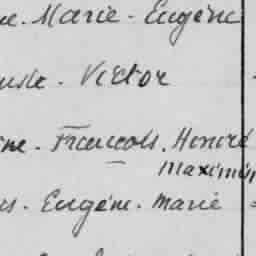 ne. Marie. Eugène
uste. Victor
me. Francois. Honoré
Maximin
is. Eugène. Marie